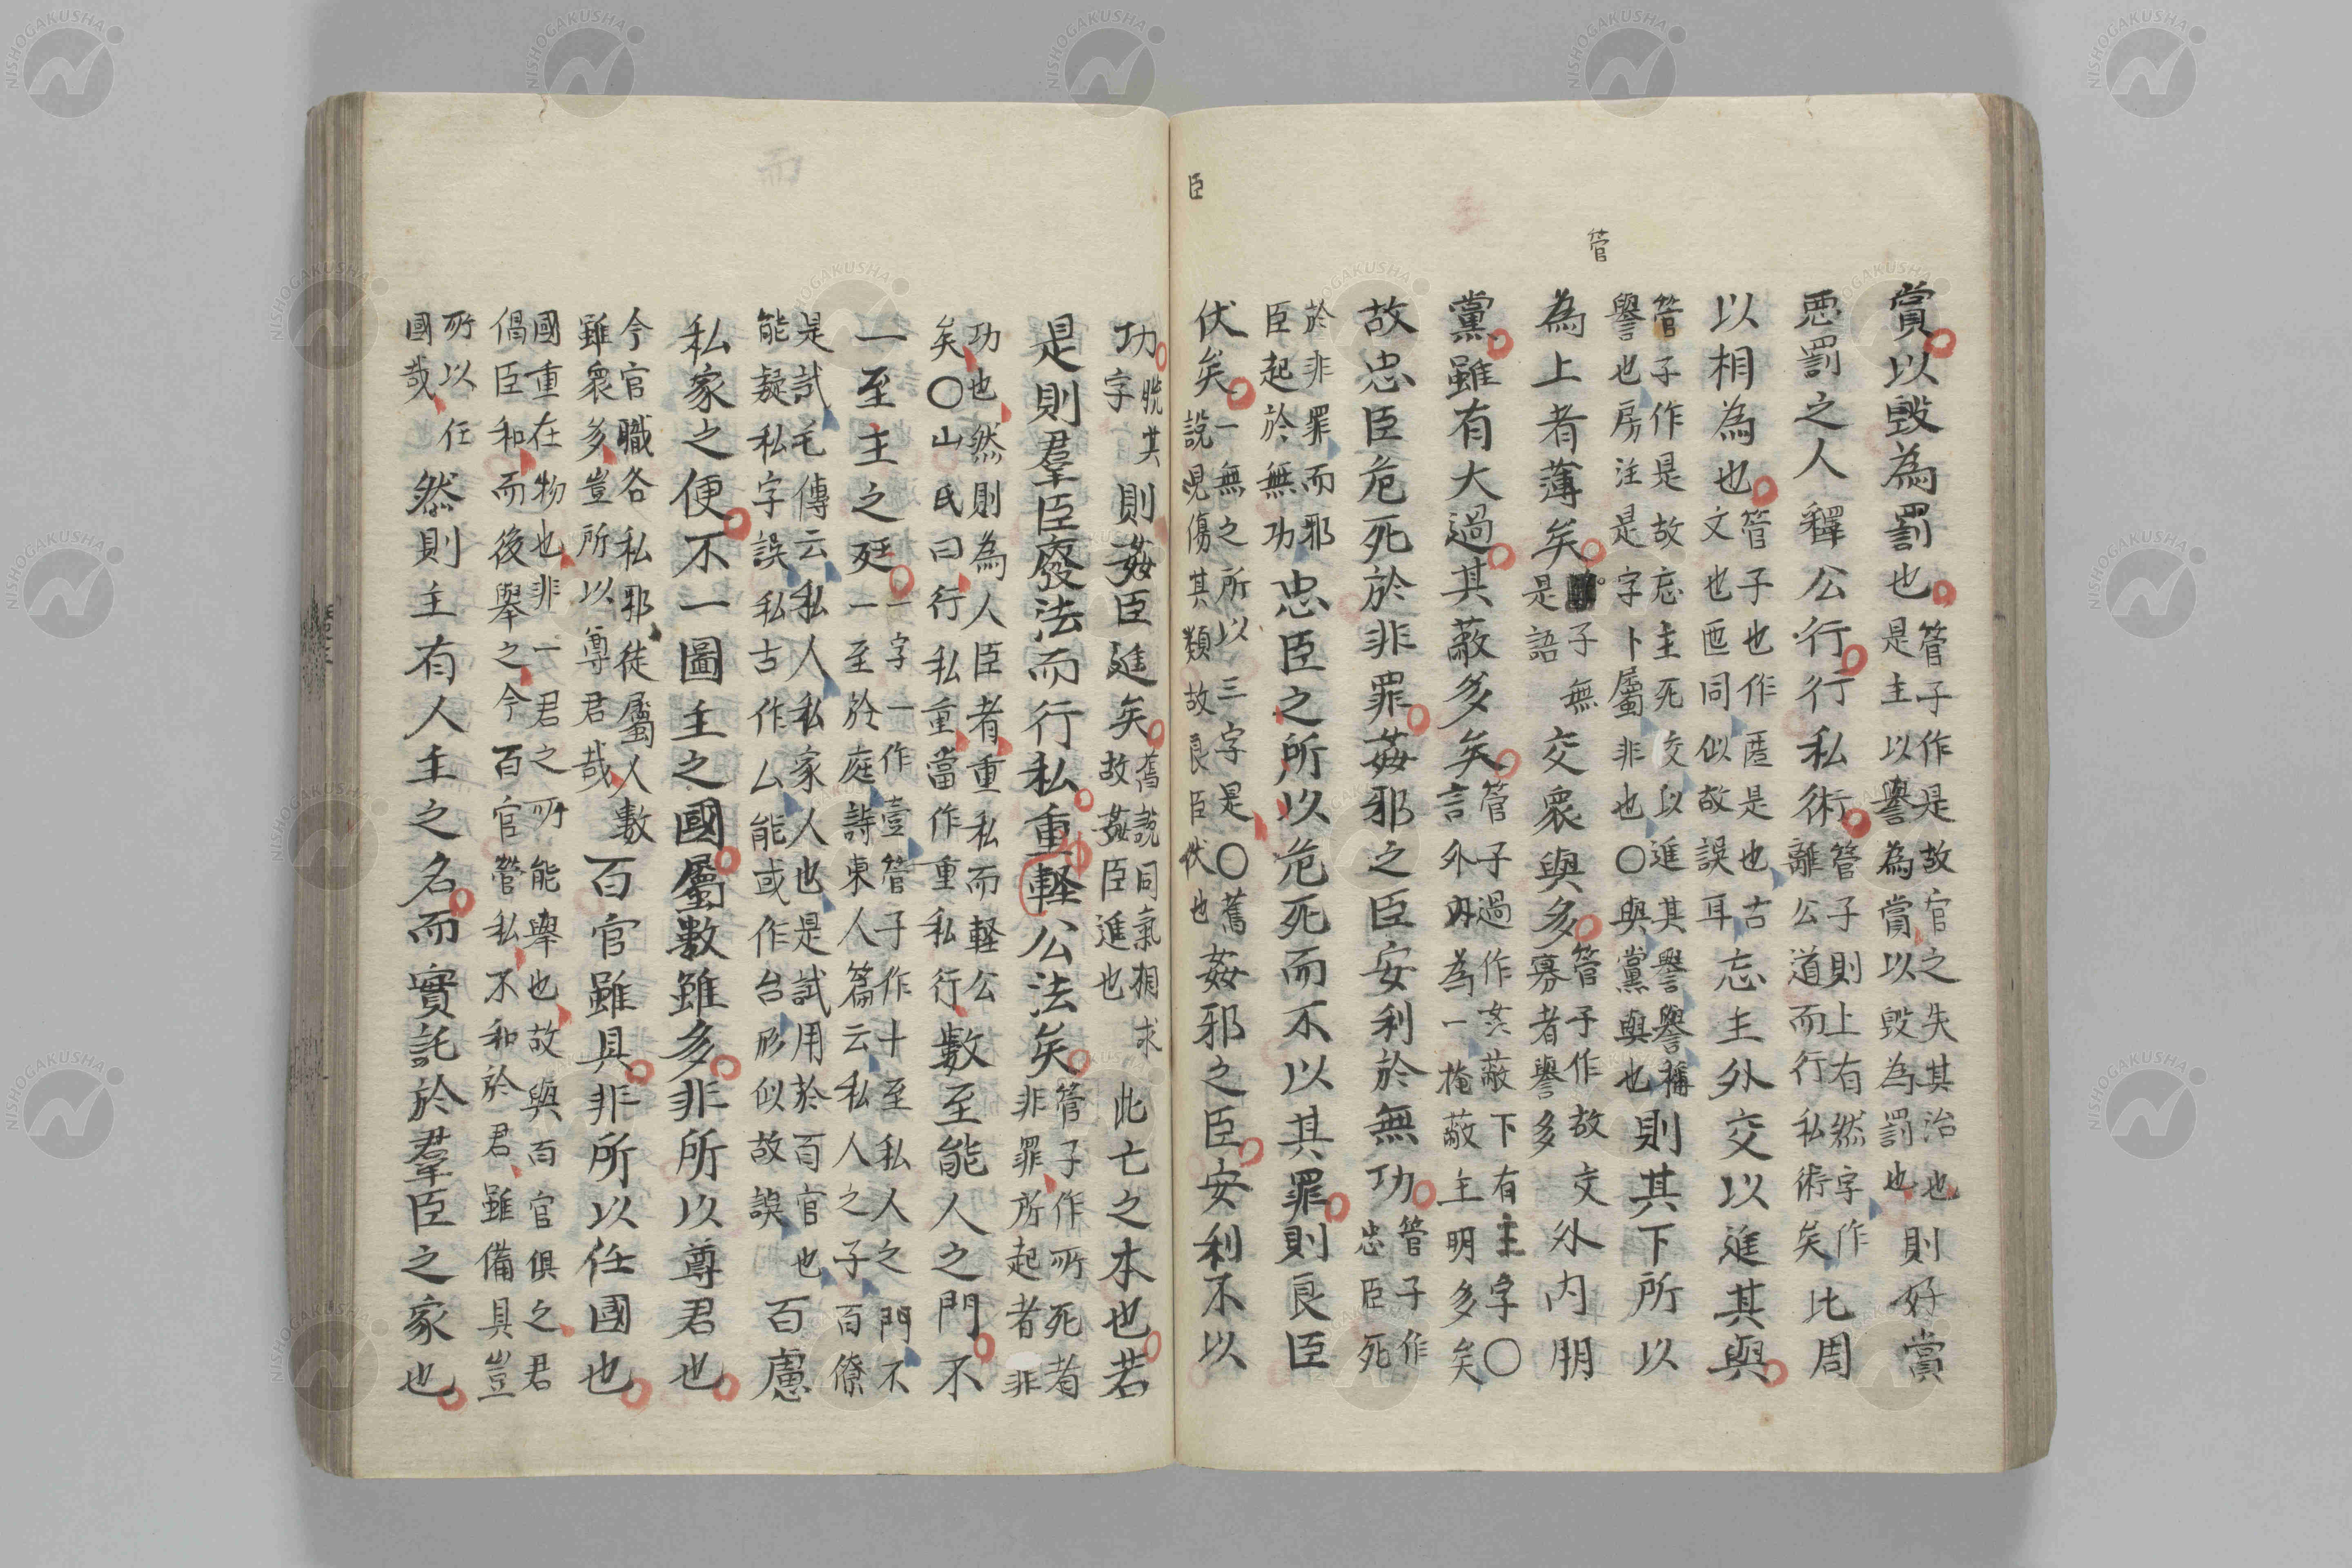 臣
管
賞以毀為罰也管子作是故官之失其治也是主以譽為賞以毀為罰也則好賞
惡罰之人釋公行行私術管子則上有然字作離公道而行私術矣比周
以相為也管子也作匿是也古文也匜同似故誤耳忘主外交以進其與
管子作是故忘主死交以進其譽譽稱譽也房注是字卜屬非也○與黨與也則其下所以
為上者薄矣子無是語交衆與多管子作故交衆者譽多外内朋
黨雖有大過其蔽多矣管子過作姦蔽下有主字○言外内為一掩蔽主明多矣
故忠臣危死於非罪姦邪之臣安利於無功管子作忠臣死
於非罪而邪臣起於無功忠臣之所以危死而不以其罪則良臣
伏矣一無之所以三字是○舊説見傷其類故良臣伏也姦邪之臣安利不以
功脱其功字則姦臣進矣舊説同氣相求故姦臣進也此亡之本也若
是則羣臣廢法而行私重輕公法矣管子作所死者非罪所起者非
功也然則為人臣者重私而輕公矣○山氏曰行私重當作重私行數至能人之門不
一至主之廷一字一作壹管子作十至私人之門不一至於庭詩東人篇云私人之子百僚
是試毛傳云私人私家人也是試用於百官也能疑私字誤私古作厶能或作台形似故誤百慮
私家之便不一圖主之國屬數雖多非所以尊君也
今官職各私邪徒屬人數雖衆多豈所以尊君哉百官雖具非所以任國也
國重在物也非一君之所能舉也故與百官俱之君倡臣和而後舉之今百官營私不和於君雖備具豈
所以任國哉然則主有人主之名而實託於羣臣之家也
NISHOGAKUSHA